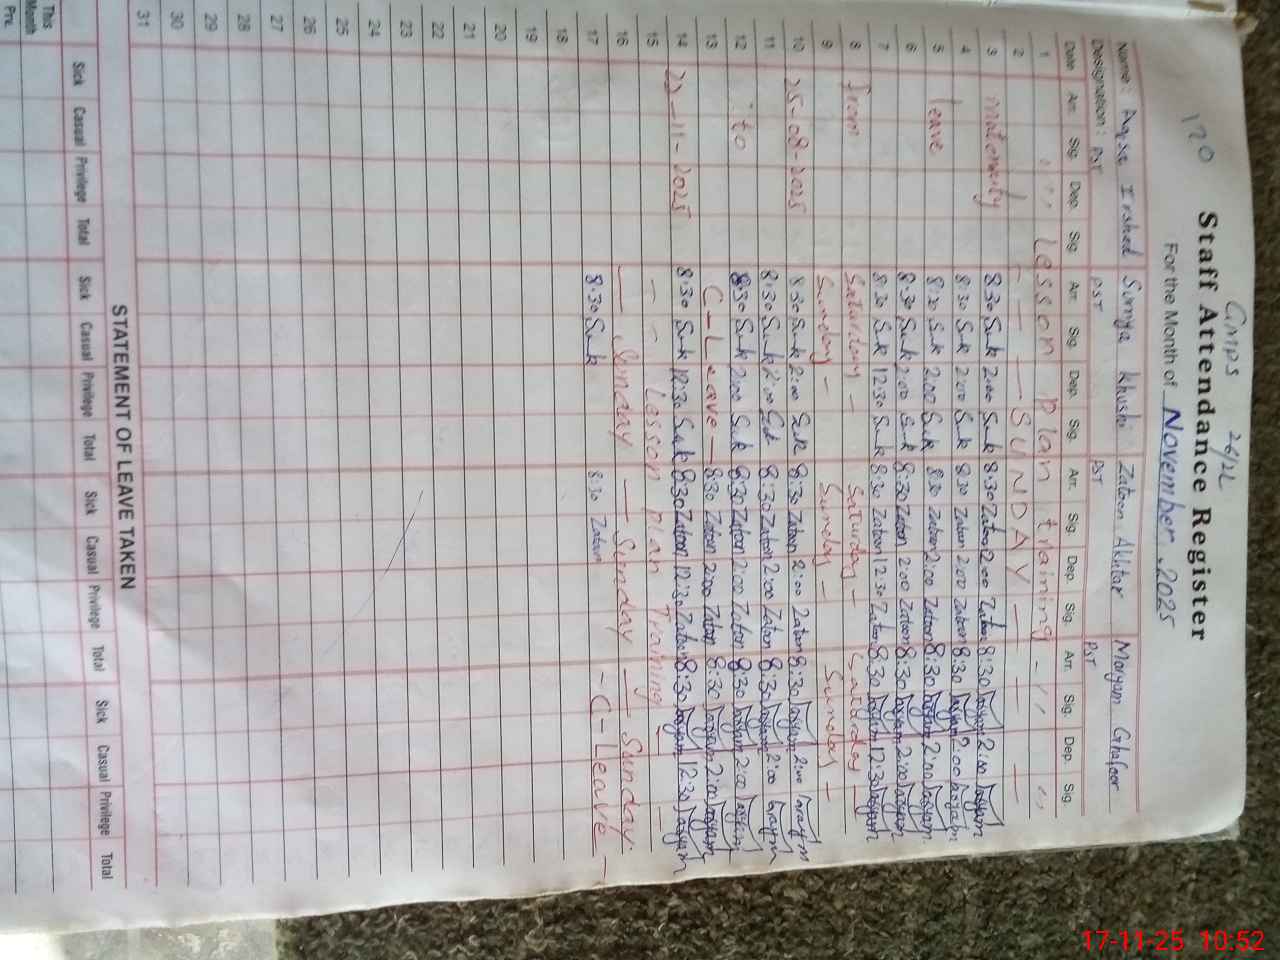 170
GMPS 26/2L
Staff Attendance Register
For the Month of November, 2025
Name: Aqsa Irshad Sumya Khushi Zatoon Akhtar Maryam Ghafoor
Designation: PST PST PST PST
Date Arr. Sig. Dep. Sig. Arr. Sig. Dep. Sig. Arr. Sig. Dep. Sig. Arr. Sig. Dep. Sig.
1 Lesson Plan training
2 SUNDAY
3 maternity 8:30 2:00 8:30 Zatoon 2:00 Zatoon 8:30 2:00
4 8:30 2:00 8:30 Zatoon 2:00 Zatoon 8:30 2:00
5 leave 8:30 2:00 8:30 Zatoon 2:00 Zatoon 8:30 2:00
6 8:30 2:00 8:30 Zatoon 2:00 Zatoon 8:30 2:00
7 8:30 12:30 8:30 Zatoon 12:30 Zatoon 8:30 12:30
8 from Saturday - Saturday - Saturday -
9 Sunday - Sunday - Sunday -
10 25-08-2025 8:30 2:00 8:30 Zatoon 2:00 Zatoon 8:30 2:00
11 8:30 2:00 8:30 Zatoon 2:00 Zatoon 8:30 2:00
12 to 8:30 2:00 8:30 Zatoon 2:00 Zatoon 8:30 2:00
13 C-Leave 8:30 Zatoon 2:00 Zatoon 8:30 2:00
14 22-11-2025 8:30 12:30 8:30 Zatoon 12:30 Zatoon 8:30 12:30
15 Lesson plan Training
16 Sunday Sunday Sunday
17 8:30 8:30 Zatoon C-Leave
18
19
20
21
22
23
24
25
26
27
28
29
30
31
STATEMENT OF LEAVE TAKEN
Sick Casual Privilege Total Sick Casual Privilege Total Sick Casual Privilege Total Sick Casual Privilege Total
This Month
Prv.
17-11-25 10:52